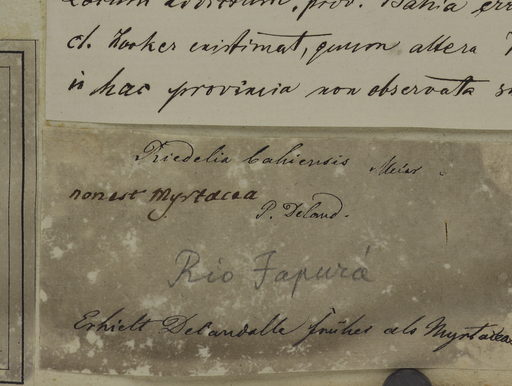 Lorum advissum, prov. Bahia
cl. Hooker existimat, quum altera
in hac provincia non observata
Riedelia bahiensis Meisn.
non est Myrtacea
P. DeCand.
Rio Japurá
Erhielt Decandolle früher als Myrtacea